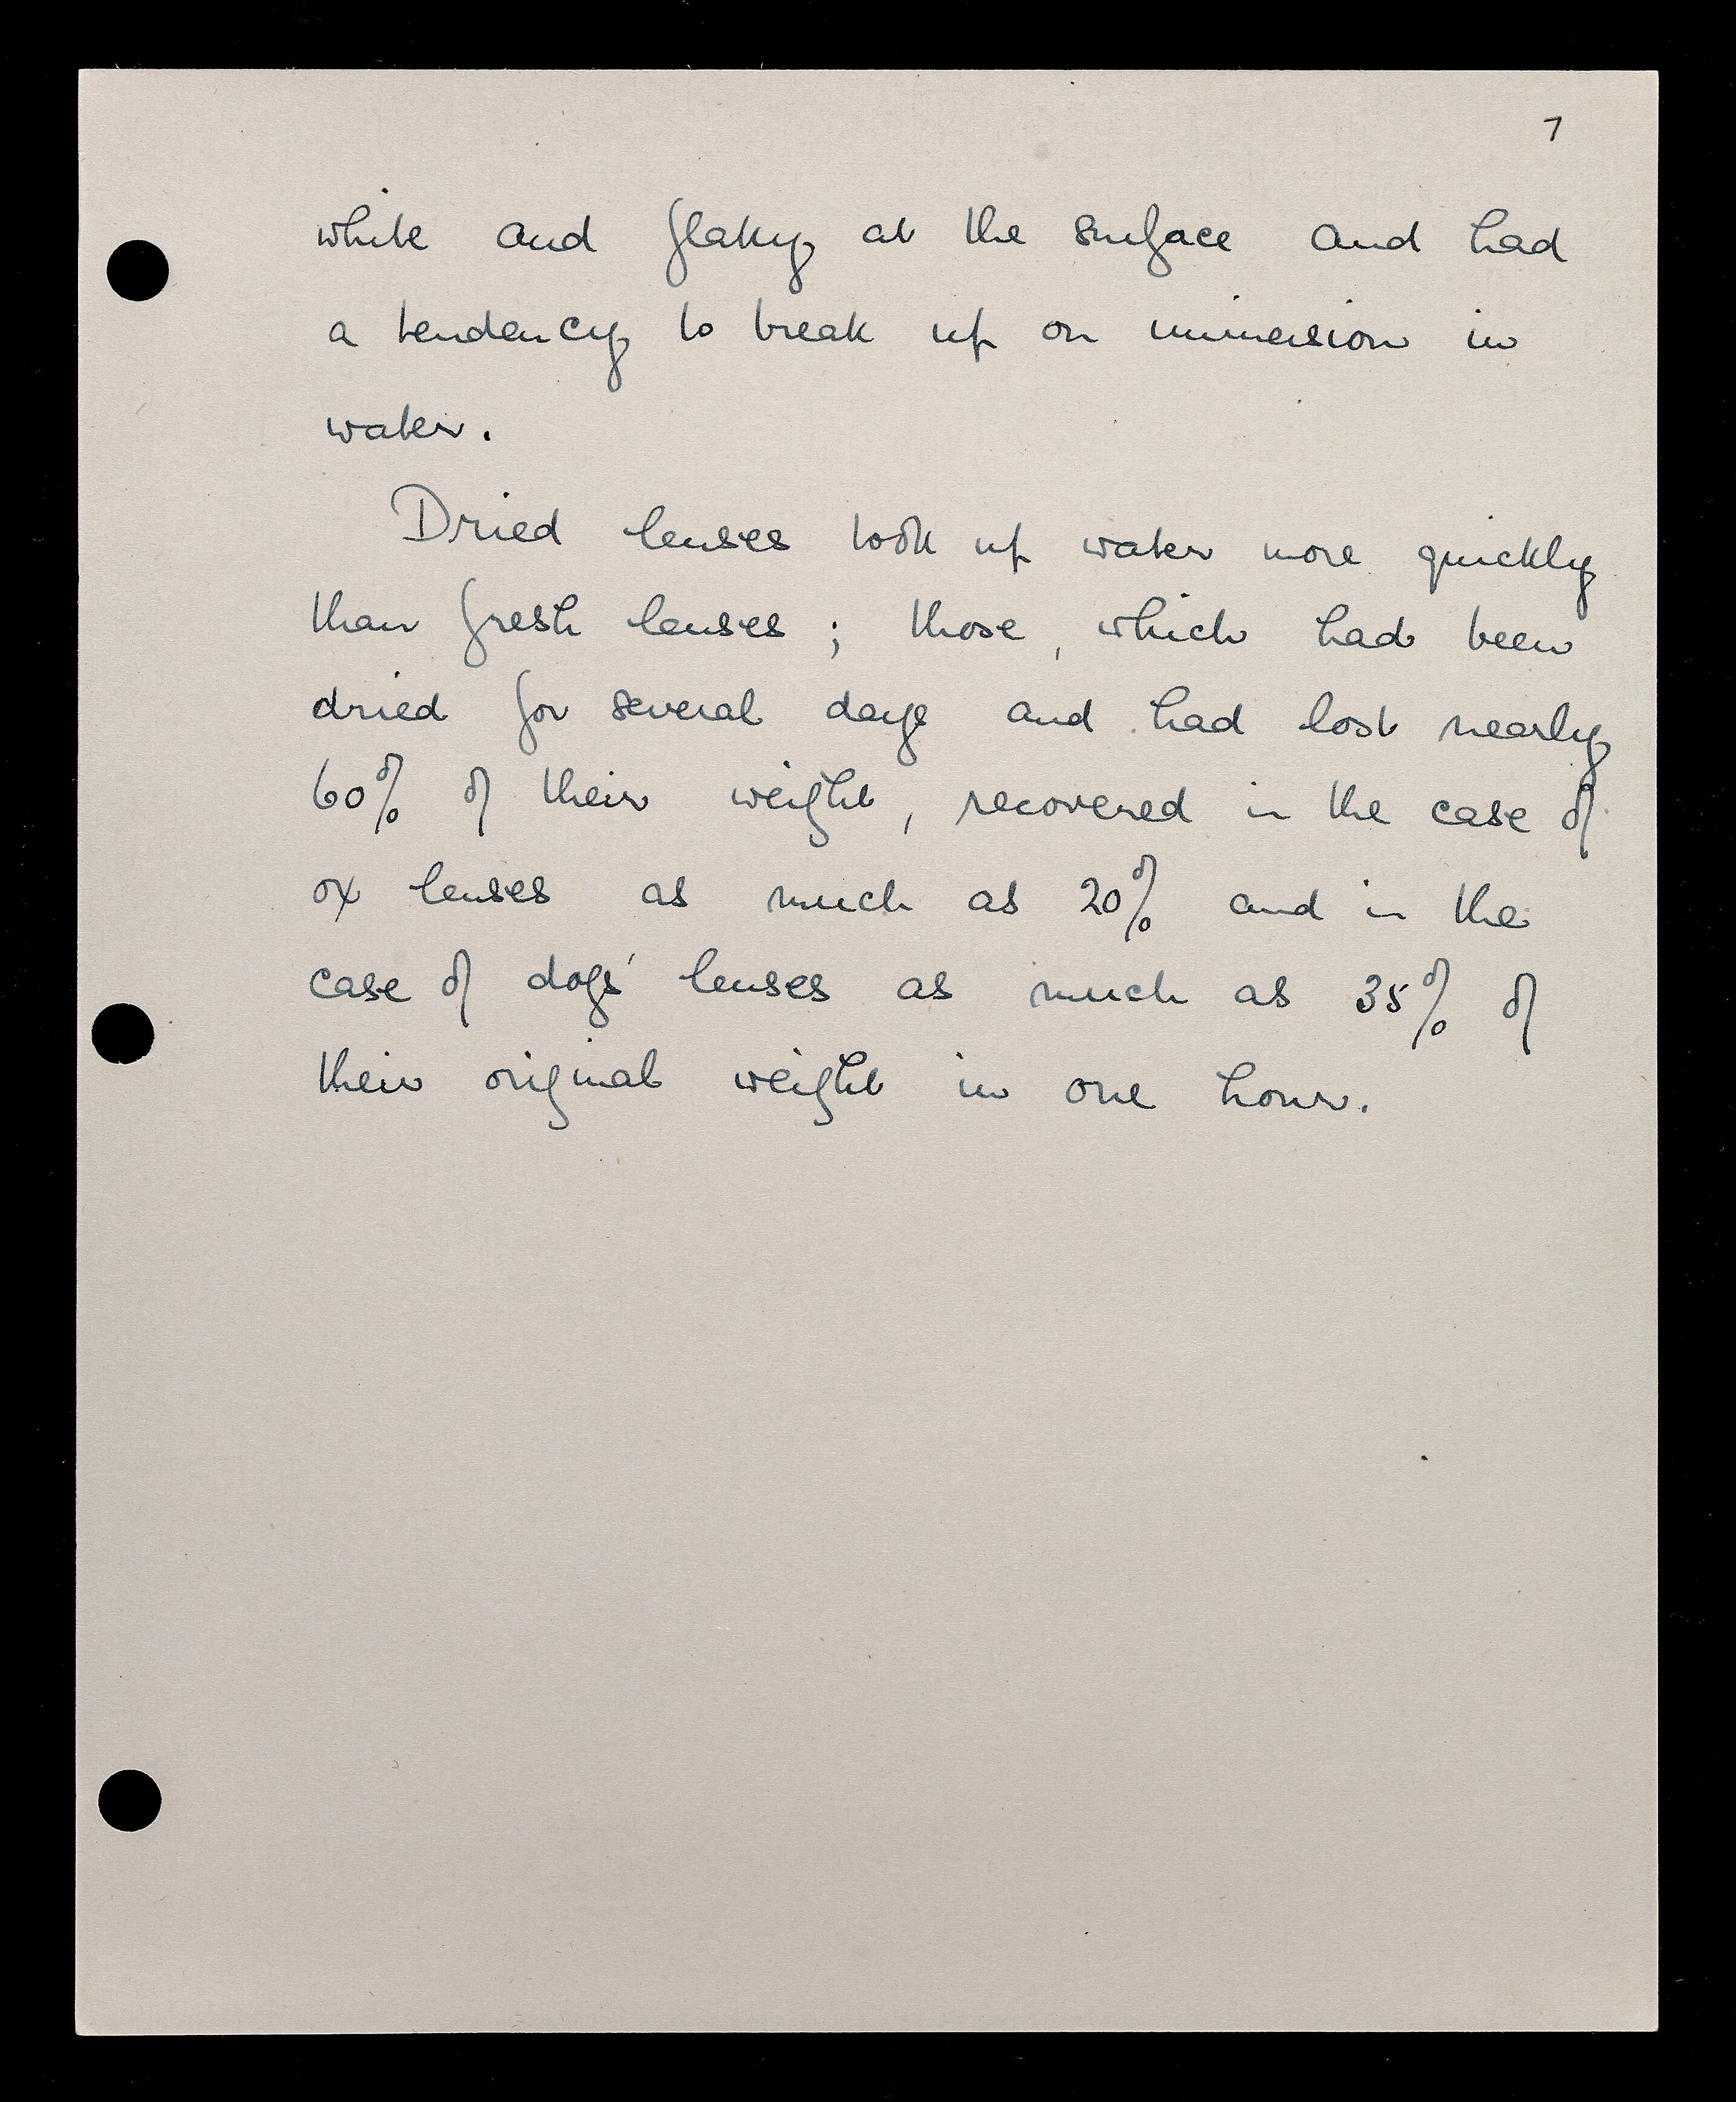 7
white and flaky at the surface and had
a tendency to break up on immersion in
water.
Dried lenses took up water more quickly
than fresh lenses; those, which had been
dried for several days and had lost nearly
60% of their weight, recovered in the case of
ox lenses as much as 20% and in the
case of dogs' lenses as much as 35% of
their original weight in one hour.